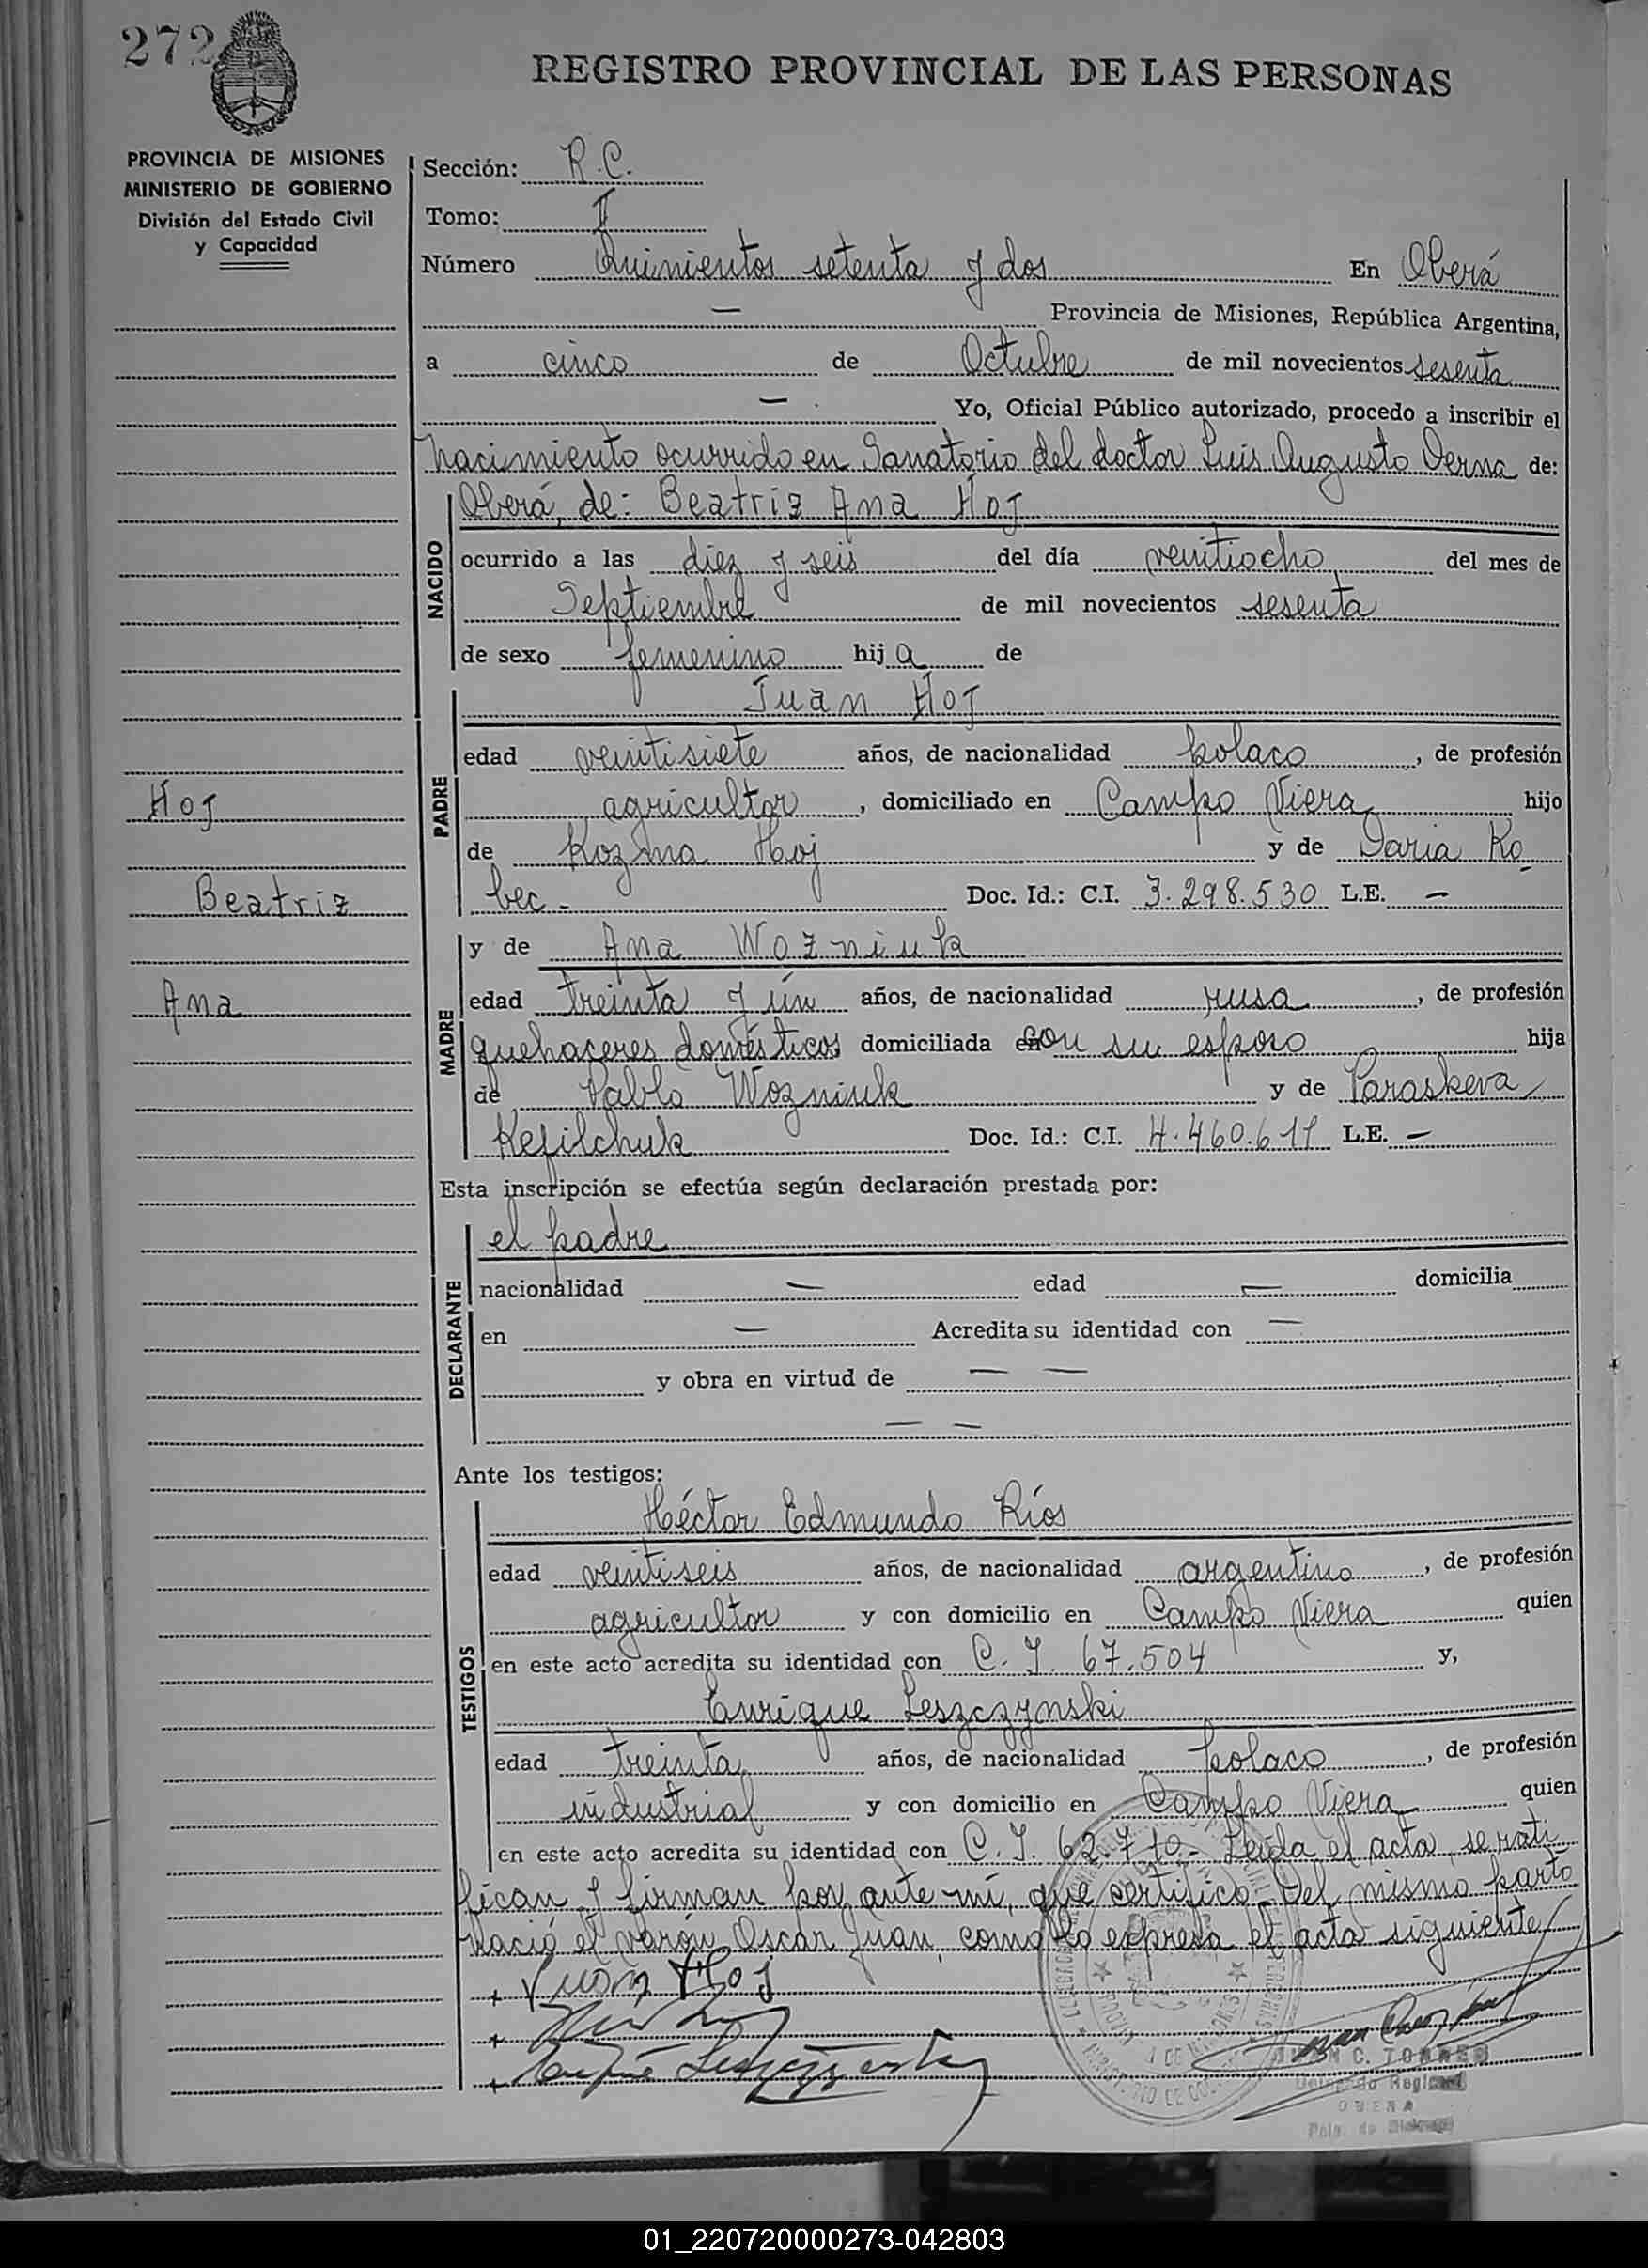 272
REGISTRO PROVINCIAL DE LAS PERSONAS
PROVINCIA DE MISIONES
MINISTERIO DE GOBIERNO
División del Estado Civil
y Capacidad
Sección: R.C.
Tomo: II
Número Quinientos setenta y dos En Oberá
— Provincia de Misiones, República Argentina,
a cinco de Octubre de mil novecientos sesenta
— . Yo, Oficial Público autorizado, procedo a inscribir el
nacimiento ocurrido en Sanatorio del doctor Luis Augusto Derna de:
NACIDO
Oberá, de: Beatriz Ana Hoj
ocurrido a las diez y seis del día veintiocho del mes de
Septiembre de mil novecientos sesenta
de sexo femenino hij a de
PADRE
Juan Hoj
edad veintisiete años, de nacionalidad polaco, de profesión
agricultor, domiciliado en Campo Viera hijo
de Kozma Hoj y de Daria Ko
bec - Doc. Id.: C.I. 3.298.530 L.E. —
Hoj
Beatriz
Ana
MADRE
y de Ana Wozniuk
edad treinta y ún años, de nacionalidad rusa, de profesión
quehaceres domésticos domiciliada en con su esposo hija
de Pablo Wozniuk y de Paraskeva
Kefilchuk Doc. Id.: C.I. 4.460.611 L.E. —
Esta inscripción se efectúa según declaración prestada por:
DECLARANTE
el padre
nacionalidad — edad — domicilia
en — Acredita su identidad con —
y obra en virtud de — —
— —
Ante los testigos:
TESTIGOS
Héctor Edmundo Ríos
edad veintiseis años, de nacionalidad argentino, de profesión
agricultor y con domicilio en Campo Viera quien
en este acto acredita su identidad con C. I. 67.504 y,
Enrique Leszczynski
edad treinta años, de nacionalidad polaco, de profesión
industrial y con domicilio en Campo Viera quien
en este acto acredita su identidad con C. I. 62.710.- Leída el acta, se rati
fican y firman por ante mí, que certifico. Del mismo parto
nació el varón Oscar Juan, como lo expresa el acta siguiente
+ Juan Hoj
+
+ Leszczynski
JUAN C. TORRES
Delegado Regional
OBERA
Pcia. de Misiones
01_220720000273-042803